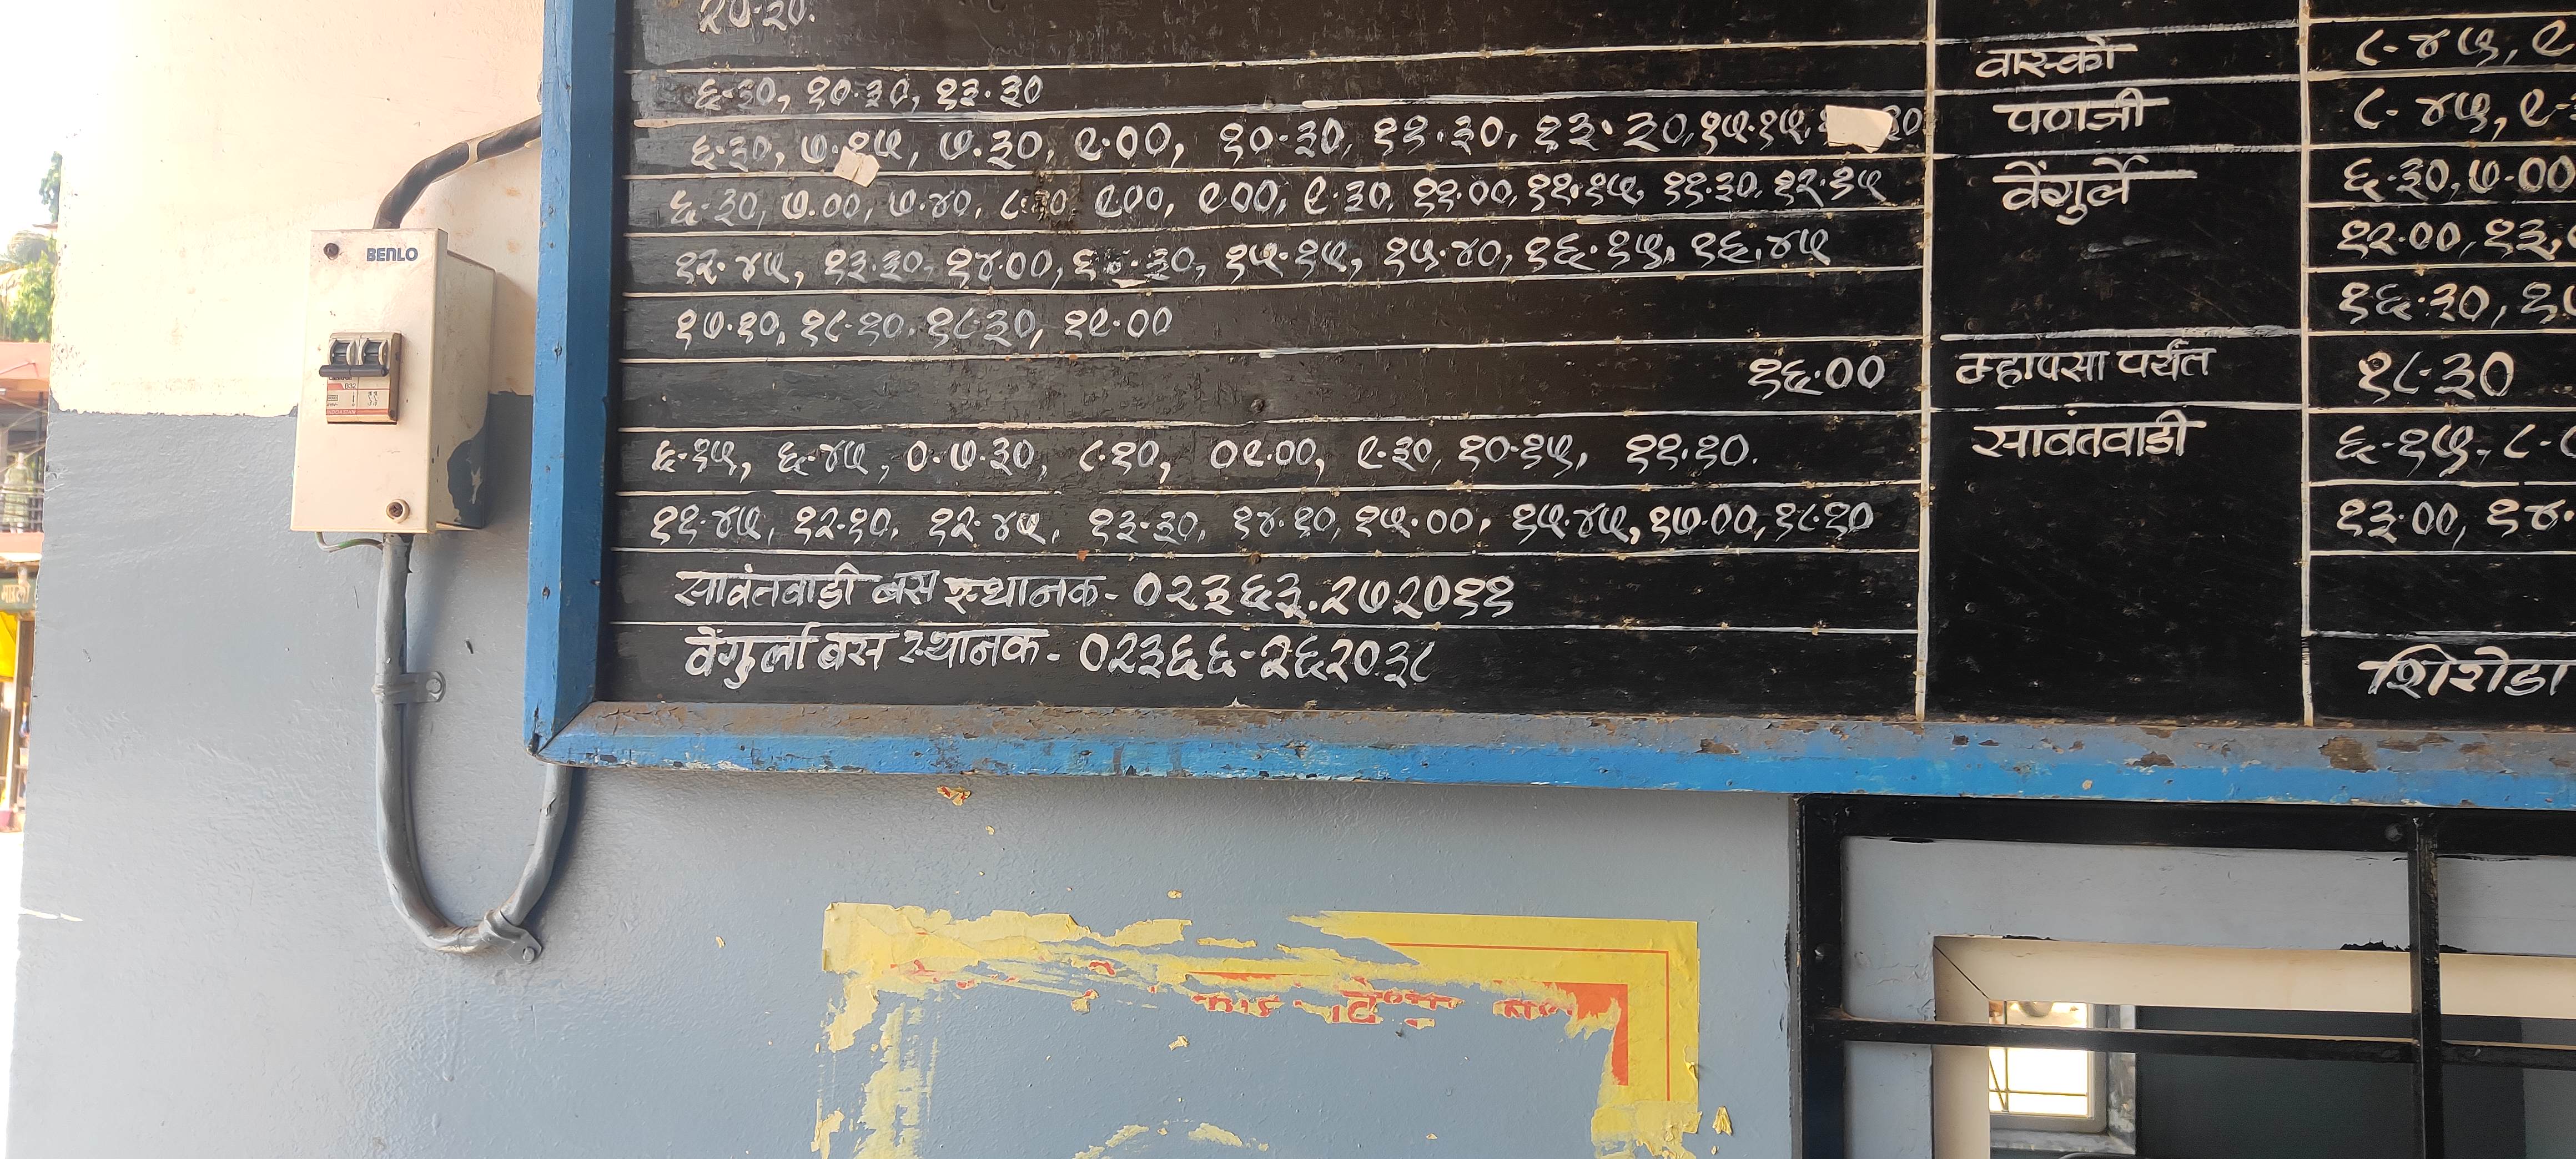 २०.३०.
६.३०, १०.३०, १३.३०
६.३०, ७.१५, ७.३०, ९.००, १०.३०, ११.३०, १३.३०, १५.१५,
६.३०, ७.००, ७.४०, ९.००, ९.००, ९.३०, ११.००, ११.१५, ११.३०, १२.१५
१२.४५, १३.३०, १४.००, १५.१५, १५.४०, १६.१५, १६.४५
१७.१०, १८.१०, १८.३०, १९.००
१६.००
६.१५, ६.४५, ०.७.३०, ८.१०, ०९.००, ९.३०, १०.१५, ११.१०.
११.४५, १२.१०, १२.४५, १३.३०, १४.१०, १५.००, १५.४५, १७.००, १८.१०
सावंतवाडी बस स्थानक - ०२३६३.२७२०११
वेंगुर्ला बस स्थानक - ०२३६६-२६२०३८
वास्को ८.४५, ९
पणजी ८.४५, ९
वेंगुर्ले ६.३०, ७.००
१२.००, १३.
१६.३०,
म्हापसा पर्यंत १८.३०
सावंतवाडी ६.१५, ८.
१३.००, १४.
शिरोडा
BENLO